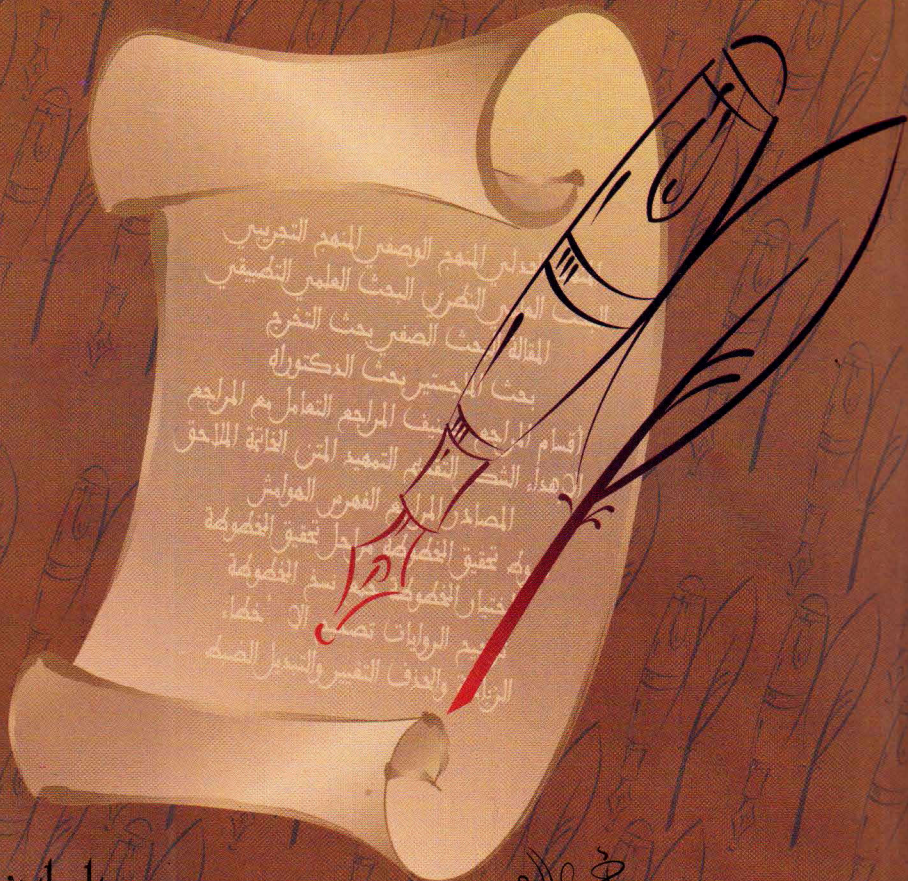 الجدلي المنهج الوصفي المنهج التجريبي
البحث العلمي النظري البحث العلمي التطبيقي
المقالة البحث الصفي بحث التخرج
بحث الماجستير بحث الدكتوراه
أقسام المراجع تصنيف المراجع التعامل مع المراجع
الاهداء الشكر التقديم التمهيد المتن الخاتمة الملاحق
المصادر المراجع الفهرس الهوامش
تحقيق المخطوطة مراحل تحقيق المخطوطة
اختيار المخطوطة نسخ المخطوطة
الروايات الاخطاء
الزيادة والحذف التغيير والتبديل الضبط